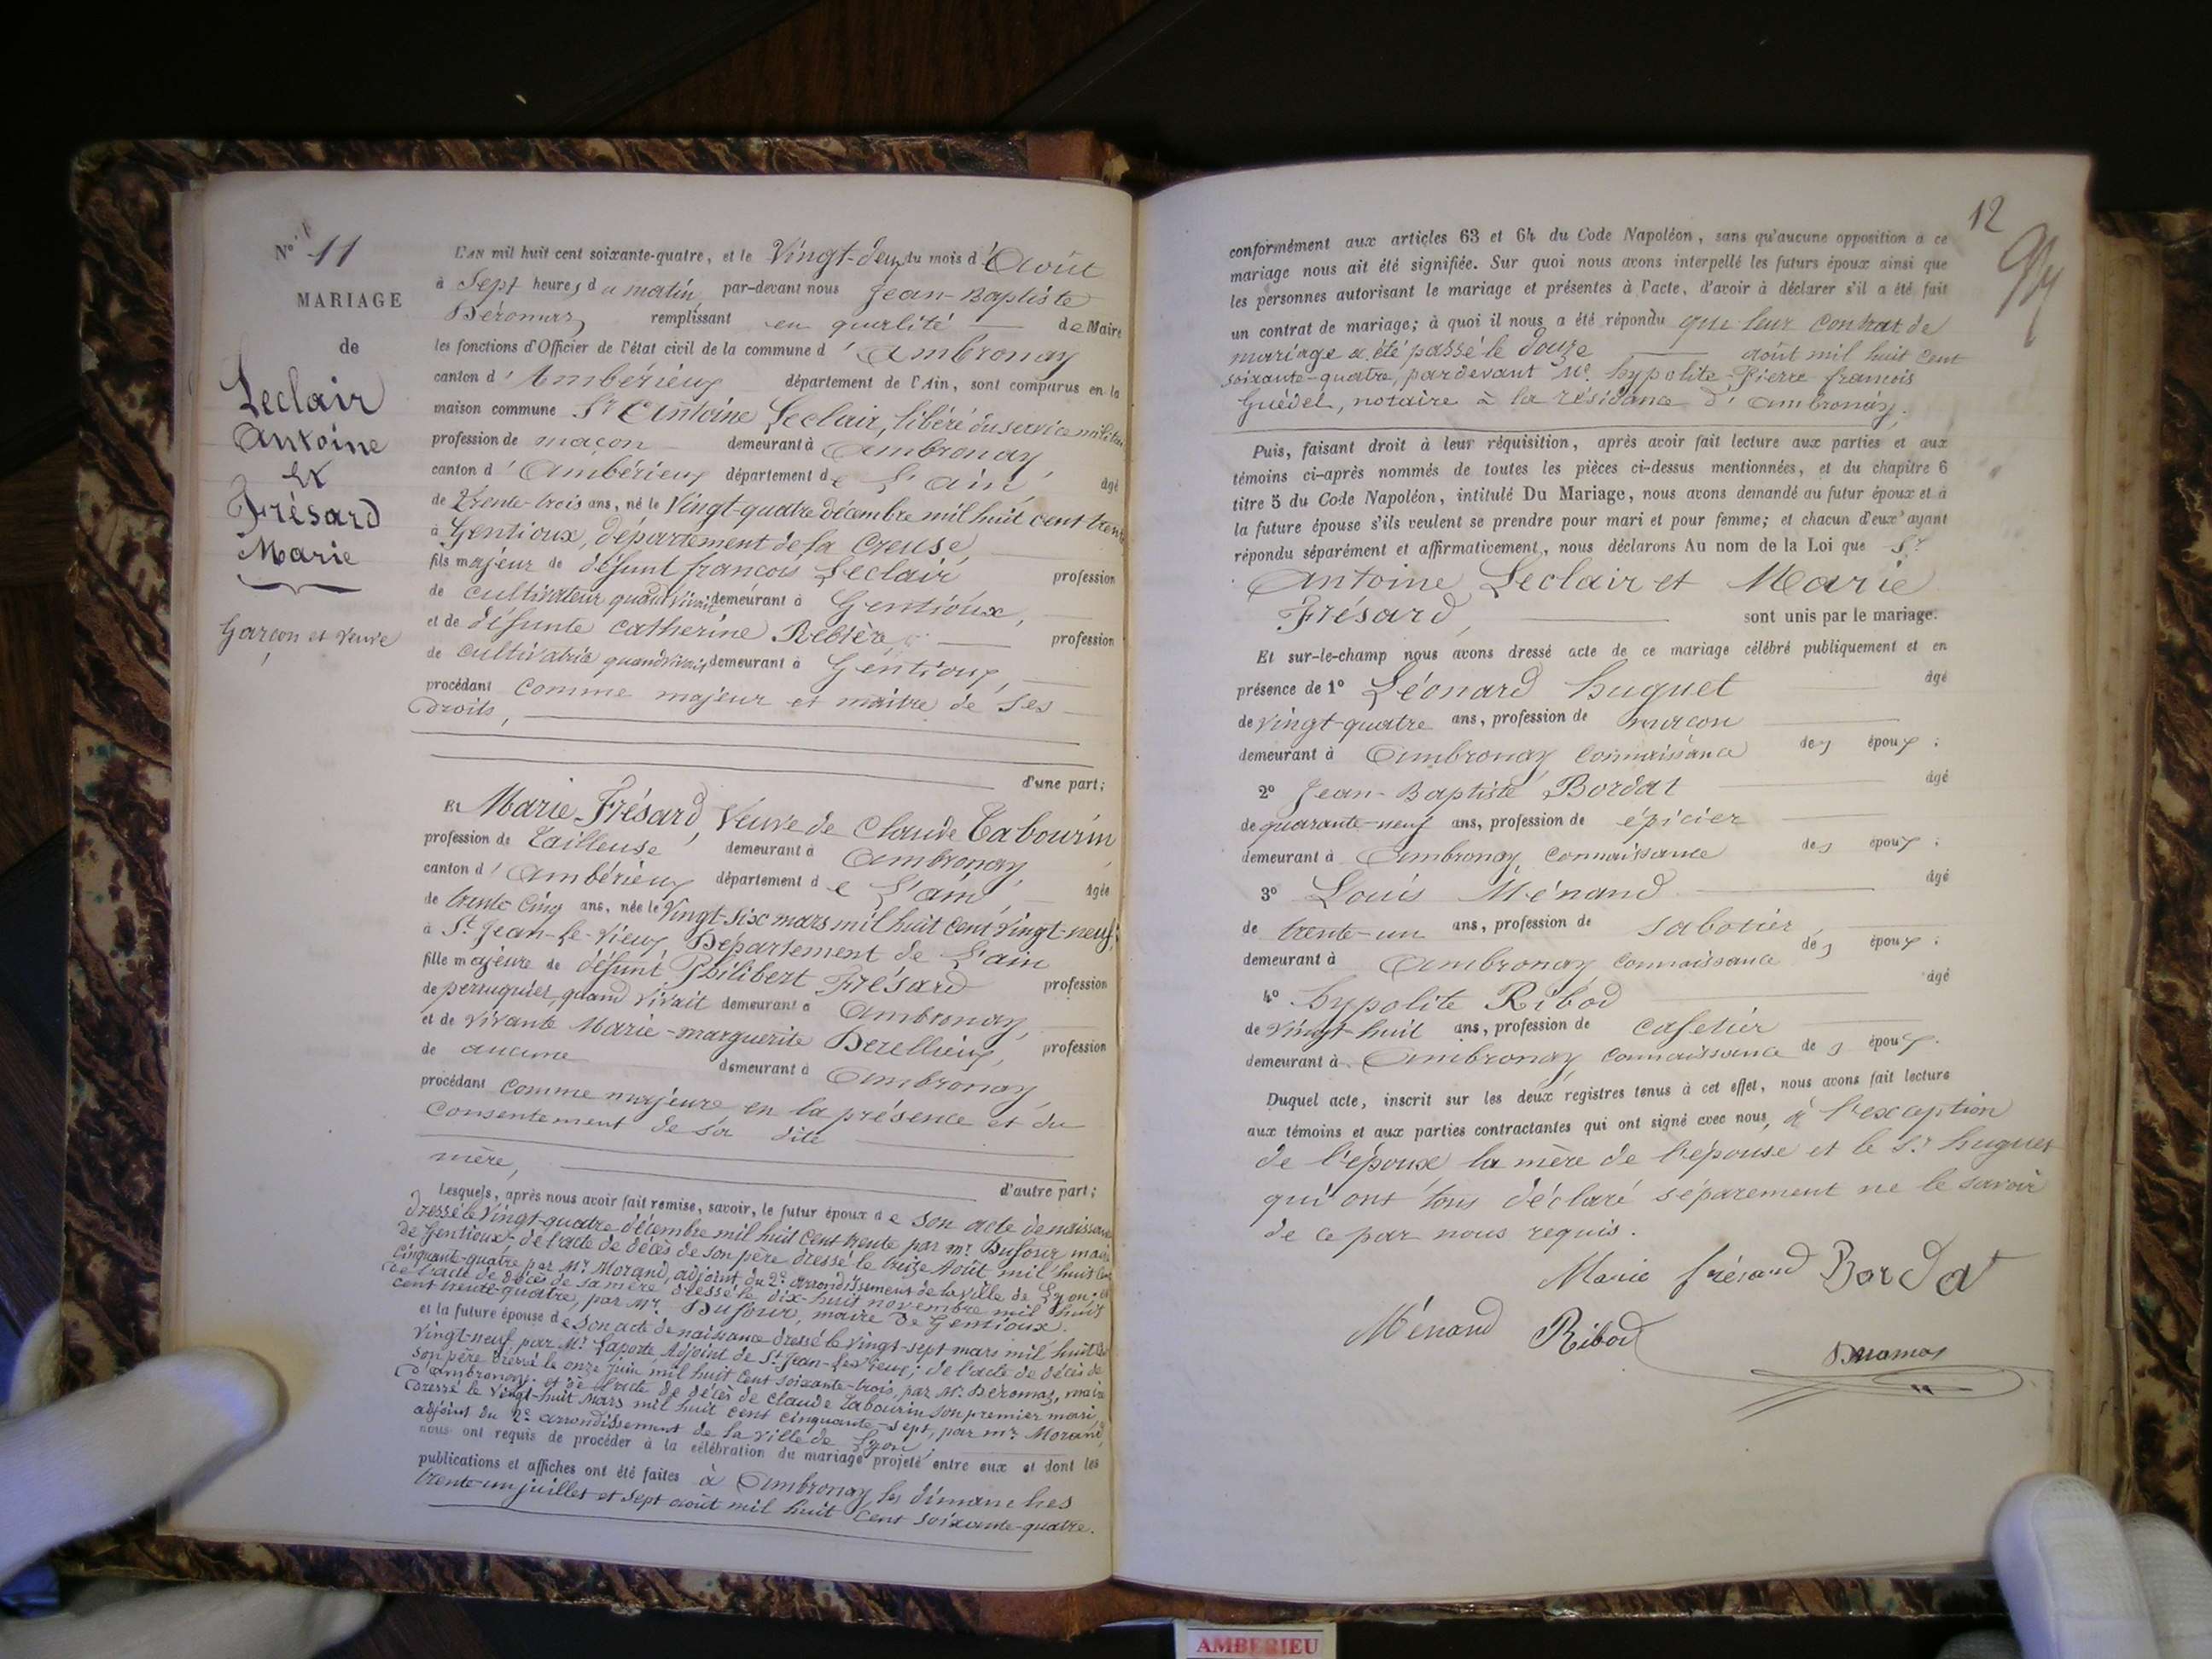 N° 11
MARIAGE
de
Leclair
Antoine
et
Frésard
Marie
Garçon et Veuve
L'AN mil huit cent soixante-quatre, et le Vingt-deux du mois d'Août
à Sept heures du matin, par-devant nous Jean-Baptiste
Béromas remplissant en qualité de Maire
les fonctions d'Officier de l'état civil de la commune d'Ambronay
canton d'Ambérieux département de l'Ain, sont comparus en la
maison commune Sr Antoine Leclair, libéré du service militaire
profession de maçon demeurant à Ambronay,
canton d'Ambérieux département de L'ain, âgé
de trente-trois ans, né le Vingt-quatre décembre mil huit cent trente
à Gentioux, département de la Creuse,
fils majeur de défunt francois Leclair profession
de cultivateur quand vivait demeurant à Gentioux,
et de défunte Catherine Rebière profession
de cultivatrice quand vivait demeurant à Gentioux,
procédant comme majeur et maître de ses
Droits,
d'une part;
Et Marie Frésard, Veuve de Claude Tabourin
profession de Tailleuse, demeurant à Ambronay,
canton d'Ambérieux département de L'ain, âgée
de trente cinq ans, née le Vingt-six mars mil huit cent vingt-neuf,
à St Jean-le-Vieux Département de L'ain
fille majeure de défunt Philibert Frésard profession
de perruquier, quand vivait demeurant à Ambronay,
et de vivante Marie-marguerite Derellieux, profession
de aucune demeurant à Ambronay,
procédant comme majeure en la présence et du
consentement de sa dite
mère,
d'autre part;
Lesquels, après nous avoir fait remise, savoir, le futur époux de son acte de naissance
Dressé le Vingt-quatre décembre mil huit cent trente par mr. Dufour maire
de Gentioux, de l'acte de décès de son père dressé le treize Août mil huit cent
cinquante-quatre par Mr Morand, adjoint, du 2e arrondissement de la ville de Lyon; et
de l'acte de décès de sa mère dressé le dix-huit novembre mil huit
cent trente-quatre, par Mr. Dufour, maire de Gentioux.
et la future épouse de son acte de naissance dressé le Vingt-sept mars mil huit cent
Vingt-neuf par Mr. Laporte Adjoint de St. Jean-le-Vieux; de l'acte de décès de
son père dressé le onze juin mil huit cent soixante-trois, par Mr. Béromas, maire
d'Ambronay. et de l'acte de décès de Claude Tabourin son premier mari,
dressé le Vingt-huit Mars mil huit cent cinquante-sept, par mr. Morand,
adjoint du 2e arrondissement de la ville de Lyon;
nous ont requis de procéder à la célébration du mariage projeté entre eux et dont les
publications et affiches ont été faites à Ambronay les dimanches
trente-un juillet et sept août mil huit cent soixante-quatre.
12
conformément aux articles 63 et 64 du Code Napoléon, sans qu'aucune opposition à ce
mariage nous ait été signifiée. Sur quoi nous avons interpellé les futurs époux ainsi que
les personnes autorisant le mariage et présentes à l'acte, d'avoir à déclarer s'il a été fait
un contrat de mariage; à quoi il nous a été répondu que leur contrat de
mariage a été passé le douze août mil huit cent
soixante-quatre, pardevant Me. hypolite-Pierre francois
Guédel, notaire à la résidance d'ambronay.
Puis, faisant droit à leur réquisition, après avoir fait lecture aux parties et aux
témoins ci-après nommés de toutes les pièces ci-dessus mentionnées, et du chapitre 6
titre 5 du Code Napoléon, intitulé Du Mariage, nous avons demandé au futur époux et à
la future épouse s'ils veulent se prendre pour mari et pour femme; et chacun d'eux ayant
répondu séparément et affirmativement, nous déclarons Au nom de la Loi que Sr
Antoine Leclair et Marie
Frésard, sont unis par le mariage.
Et sur-le-champ nous avons dressé acte de ce mariage célébré publiquement et en
présence de 1° Léonard huguet âgé
de Vingt-quatre ans, profession de macon
demeurant à Ambronay connaissance des époux;
2° Jean-Baptiste Bordat âgé
de quarante-neuf ans, profession de épicier
demeurant à Ambronay connaissance des époux;
3° Louis Ménand âgé
de trente-un ans, profession de sabotier,
demeurant à Ambronay connaissance des époux;
4° hypolite Ribod âgé
de vingt-huit ans, profession de cafetier
demeurant à Ambronay connaissance des époux.
Duquel acte, inscrit sur les deux registres tenus à cet effet, nous avons fait lecture
aux témoins et aux parties contractantes qui ont signé avec nous, à l'exception
de l'époux la mère de l'épouse et le Sr. huguet
qui ont tous déclaré séparement ne le savoir
de ce par nous requis.
Marie frésard Bordat
Ménand Ribod
AMBERIEU